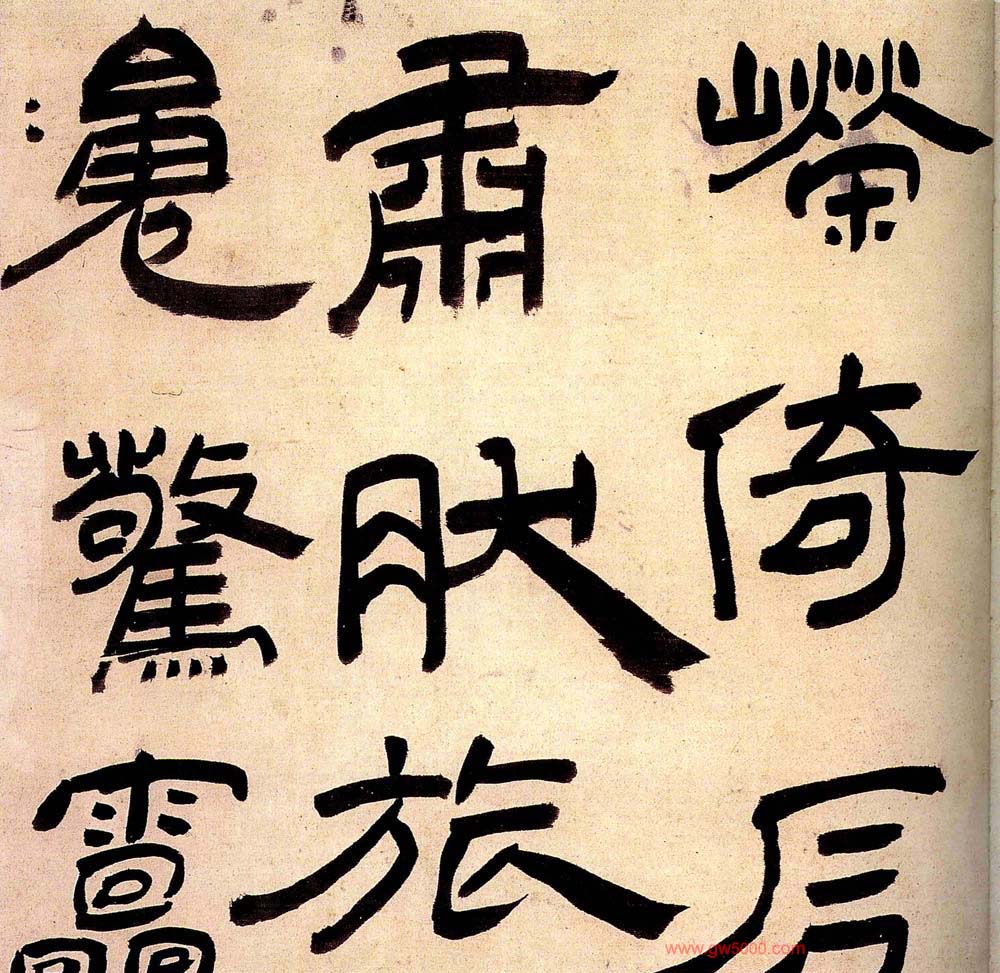 嶸倚
肅肰旅
驚靁
www.gw5000.com